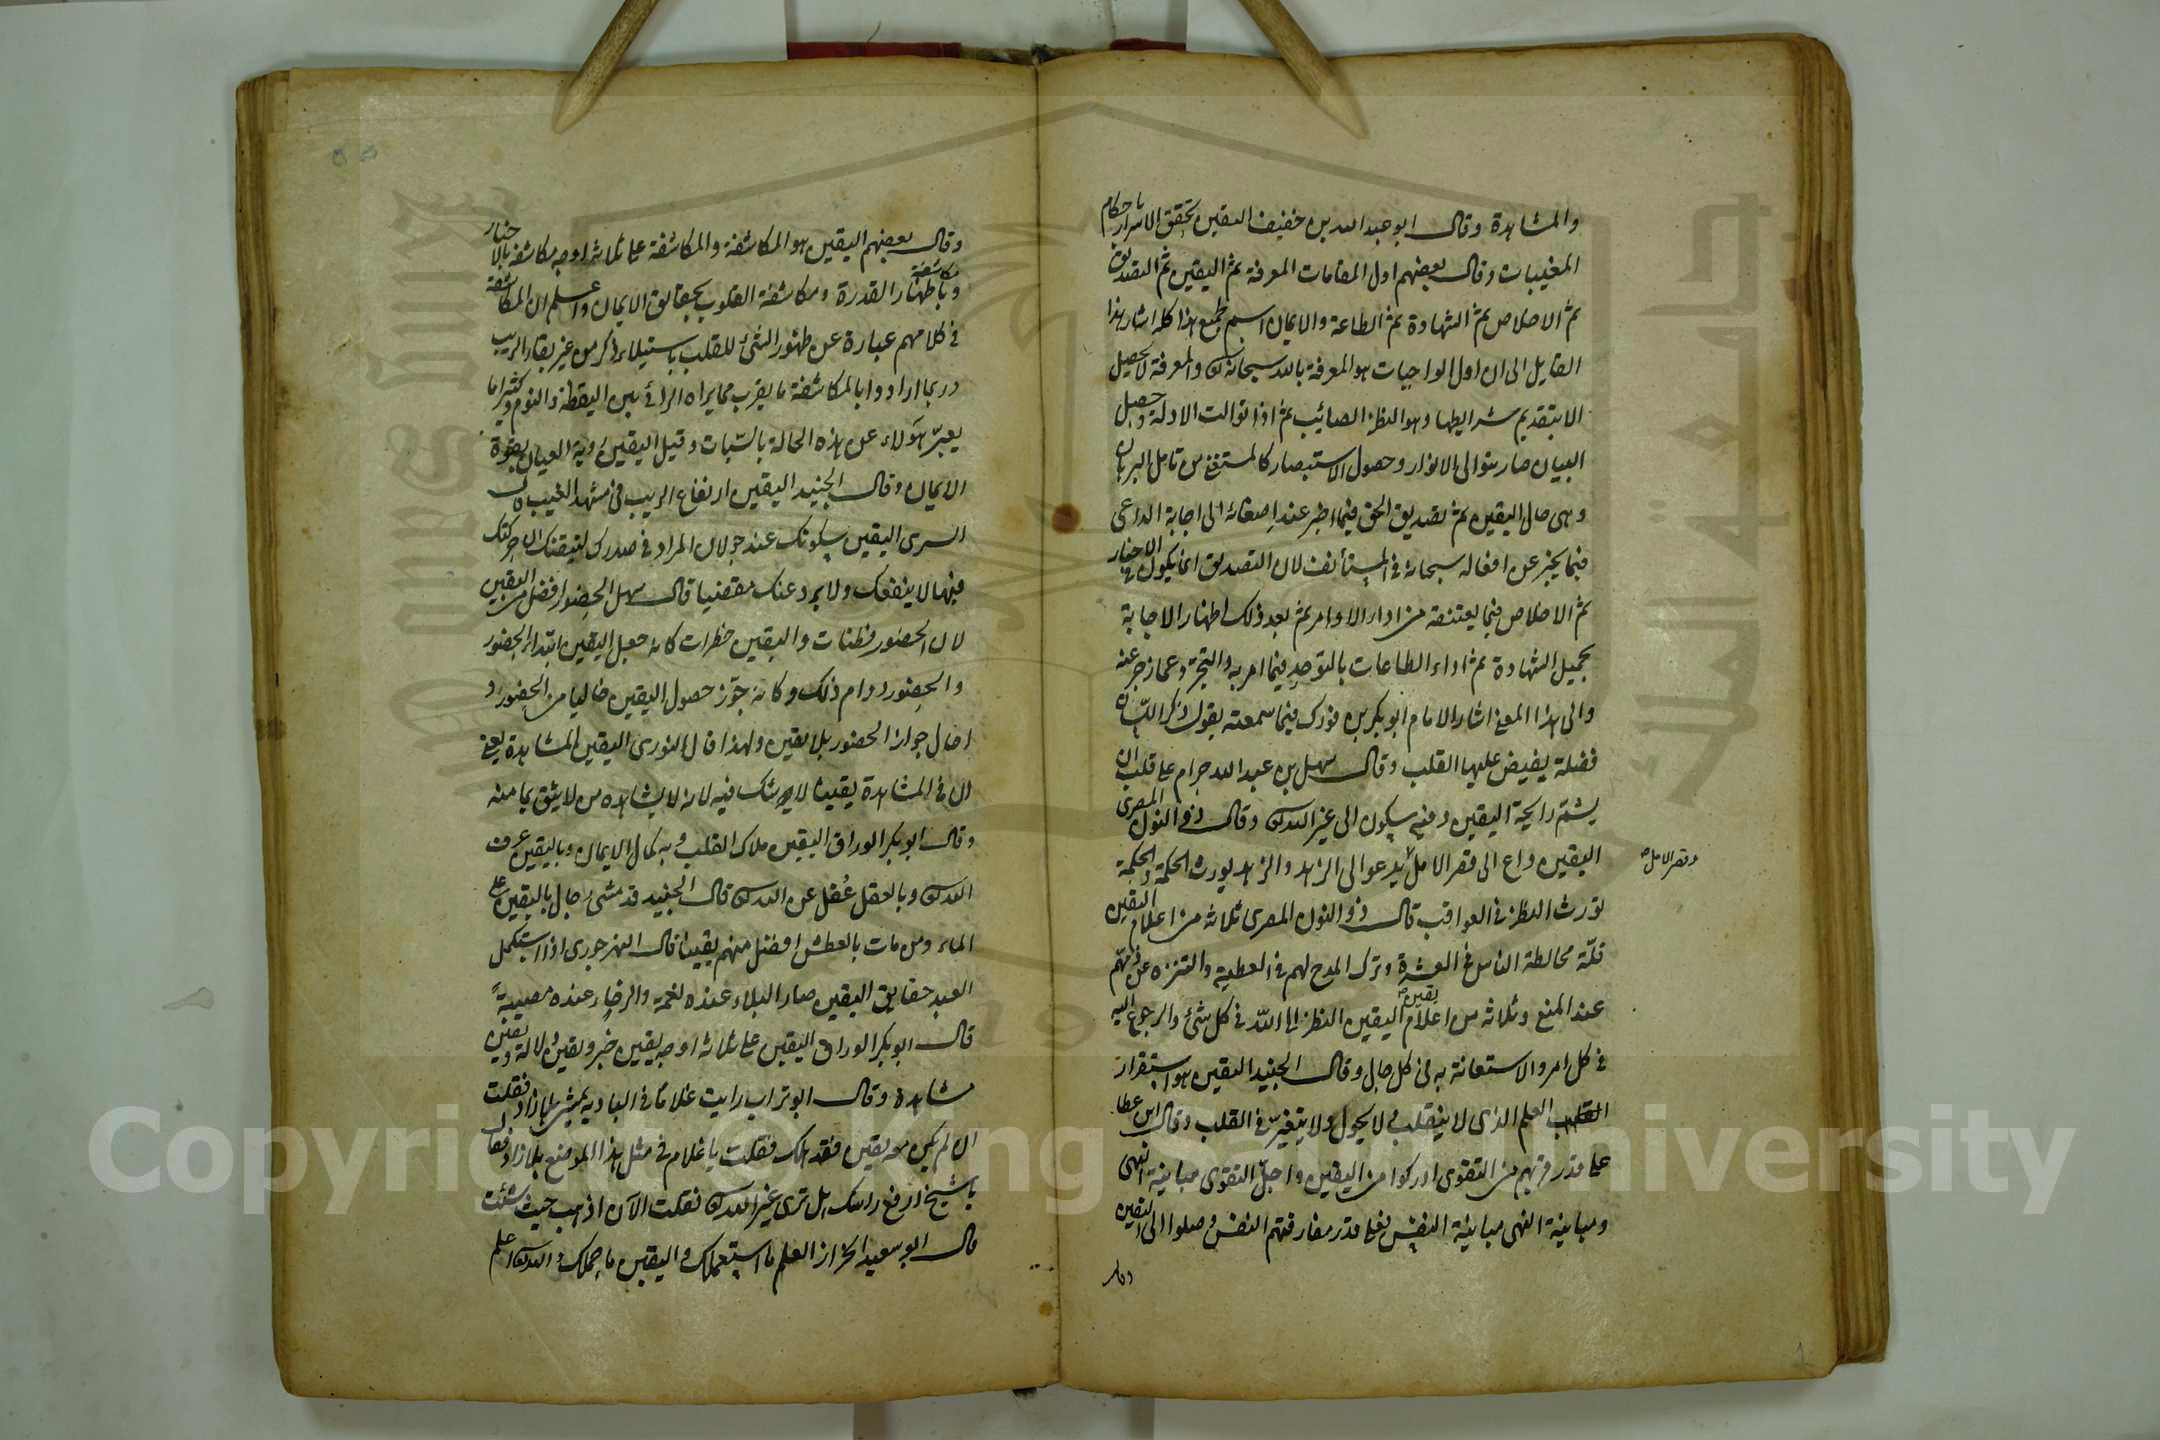 والمشاهدة وقال ابو عبد الله بن خفيف اليقين تحقق الاسرار باحكام
المغيبات وقال بعضهم اول المقامات المعرفة ثم اليقين ثم التصديق
ثم الاخلاص ثم الشهادة ثم الطاعة والايمان اسم يجمع هذا كله اشار هذا
القايل الى ان اول الواجبات هو المعرفة بالله سبحانه والمعرفة لا تحصل
الا بتقديم شرايطها وهو النظر الصائب ثم اذا توالت الادلة وحصل
البيان صار بتوالى الانوار وحصول الاستبصار كالمستغنى من تامل البرهان
وهى حال اليقين ثم تصديق الحق فيما اخبر عند اصغائه الى اجابة الداعى
فيما يخبر عن افعاله سبحانه فى المستأنف لان التصديق انما يكون فى الاخبار
ثم الاخلاص فيما يعتنقه من اداء الاوامر ثم بعد ذلك اظهار الاجابة
بجميل الشهادة ثم اداء الطاعات بالتوحيد فيما امر به والتجرد عما زجر عنه
والى هذا المعنى اشار الامام ابو بكر بن فورك فيما سمعته يقول ذكر اللسان
فضلة يفيض عليها القلب وقال سهل بن عبد الله حرام على قلب ان
يشم رايحة اليقين وفيه سكون الى غير الله وقال ذو النون المصرى
اليقين داع الى قصر الامل يدعو الى الزهد والزهد يورث الحكمة والحكمة
وقصر الامل صح
تورث النظر فى العواقب قال ذو النون المصرى ثلاثة من اعلام اليقين
قلة مخالطة الناس فى العشرة وترك المدح لهم فى العطية والتنزه عن ذمهم
عند المنع وثلاثة من اعلام يقين اليقين النظر الى الله فى كل شئ والرجوع اليه
فى كل امر والاستعانة به فى كل حال وقال الجنيد اليقين هو استقرار
العلم الذى لا ينقلب ولا يحول ولا يتغير فى القلب وقال ابن عطا
على قدر قربهم من التقوى ادركوا من اليقين واصل التقوى مباينة النهى
ومباينة النهى مباينة النفس فعلى قدر مفارقتهم النفس وصلوا الى اليقين
وقال
وقال بعضهم اليقين هو المكاشفة والمكاشفة على ثلاثة اوجه مكاشفة بالاخبار
ومكاشفة باظهار القدرة ومكاشفة القلوب بحقائق الايمان واعلم ان المكاشفة
فى كلامهم عبارة عن ظهور الشئ للقلب باستيلاء ذكره من غير بقاء الريب
وربما ارادوا بالمكاشفة ما يقرب مما يراه الرائى بين اليقظة والنوم وكثيرا ما
يعبر هؤلاء عن هذه الحالة بالثبات وقيل اليقين رؤية العيان بقوة
الايمان وقال الجنيد اليقين ارتفاع الريب فى مشهد الغيب قال
السرى اليقين سكونك عند جولان الموارد فى صدرك لتيقنك ان حركتك
فيها لا ينفعك ولا يرد عنك مقضيا قال سهل الحضور افضل من اليقين
لان الحضور وطنات واليقين خطرات كانه جعل اليقين ابتداء الحضور
والحضور دوام ذلك وكانه جوز حصول اليقين خاليا من الحضور و
احال جواز الحضور بلا يقين ولهذا قال النورى اليقين المشاهدة يعنى
ان فى المشاهدة يقينا لا شك فيه لانه لا يشاهده من لا يثق بما منه
وقال ابو بكر الوراق اليقين ملاك القلب وبه كمال الايمان وباليقين عرف
الله وبالعقل عقل عن الله قال الجنيد قد مشى رجال باليقين على
الماء ومن مات بالعطش افضل منهم يقينا قال النهرجورى اذا استكمل
العبد حقايق اليقين صار البلاء عنده نعمة والرخاء عنده مصيبة
قال ابو بكر الوراق اليقين على ثلاثة اوجه يقين خبر ويقين دلالة ويقين
مشاهدة وقال ابو تراب رايت غلاما فى البادية يمشى بلا زاد فقلت
ان لم يكن معه يقين فقد هلك فقلت يا غلام فى مثل هذا الموضع بلا زاد فقال
يا شيخ ارفع راسك هل ترى غير الله فقلت الآن اذهب حيث شئت
قال ابو سعيد الخراز العلم ما استعملك واليقين ما حملك والله اعلم
Copyright © King Saud University